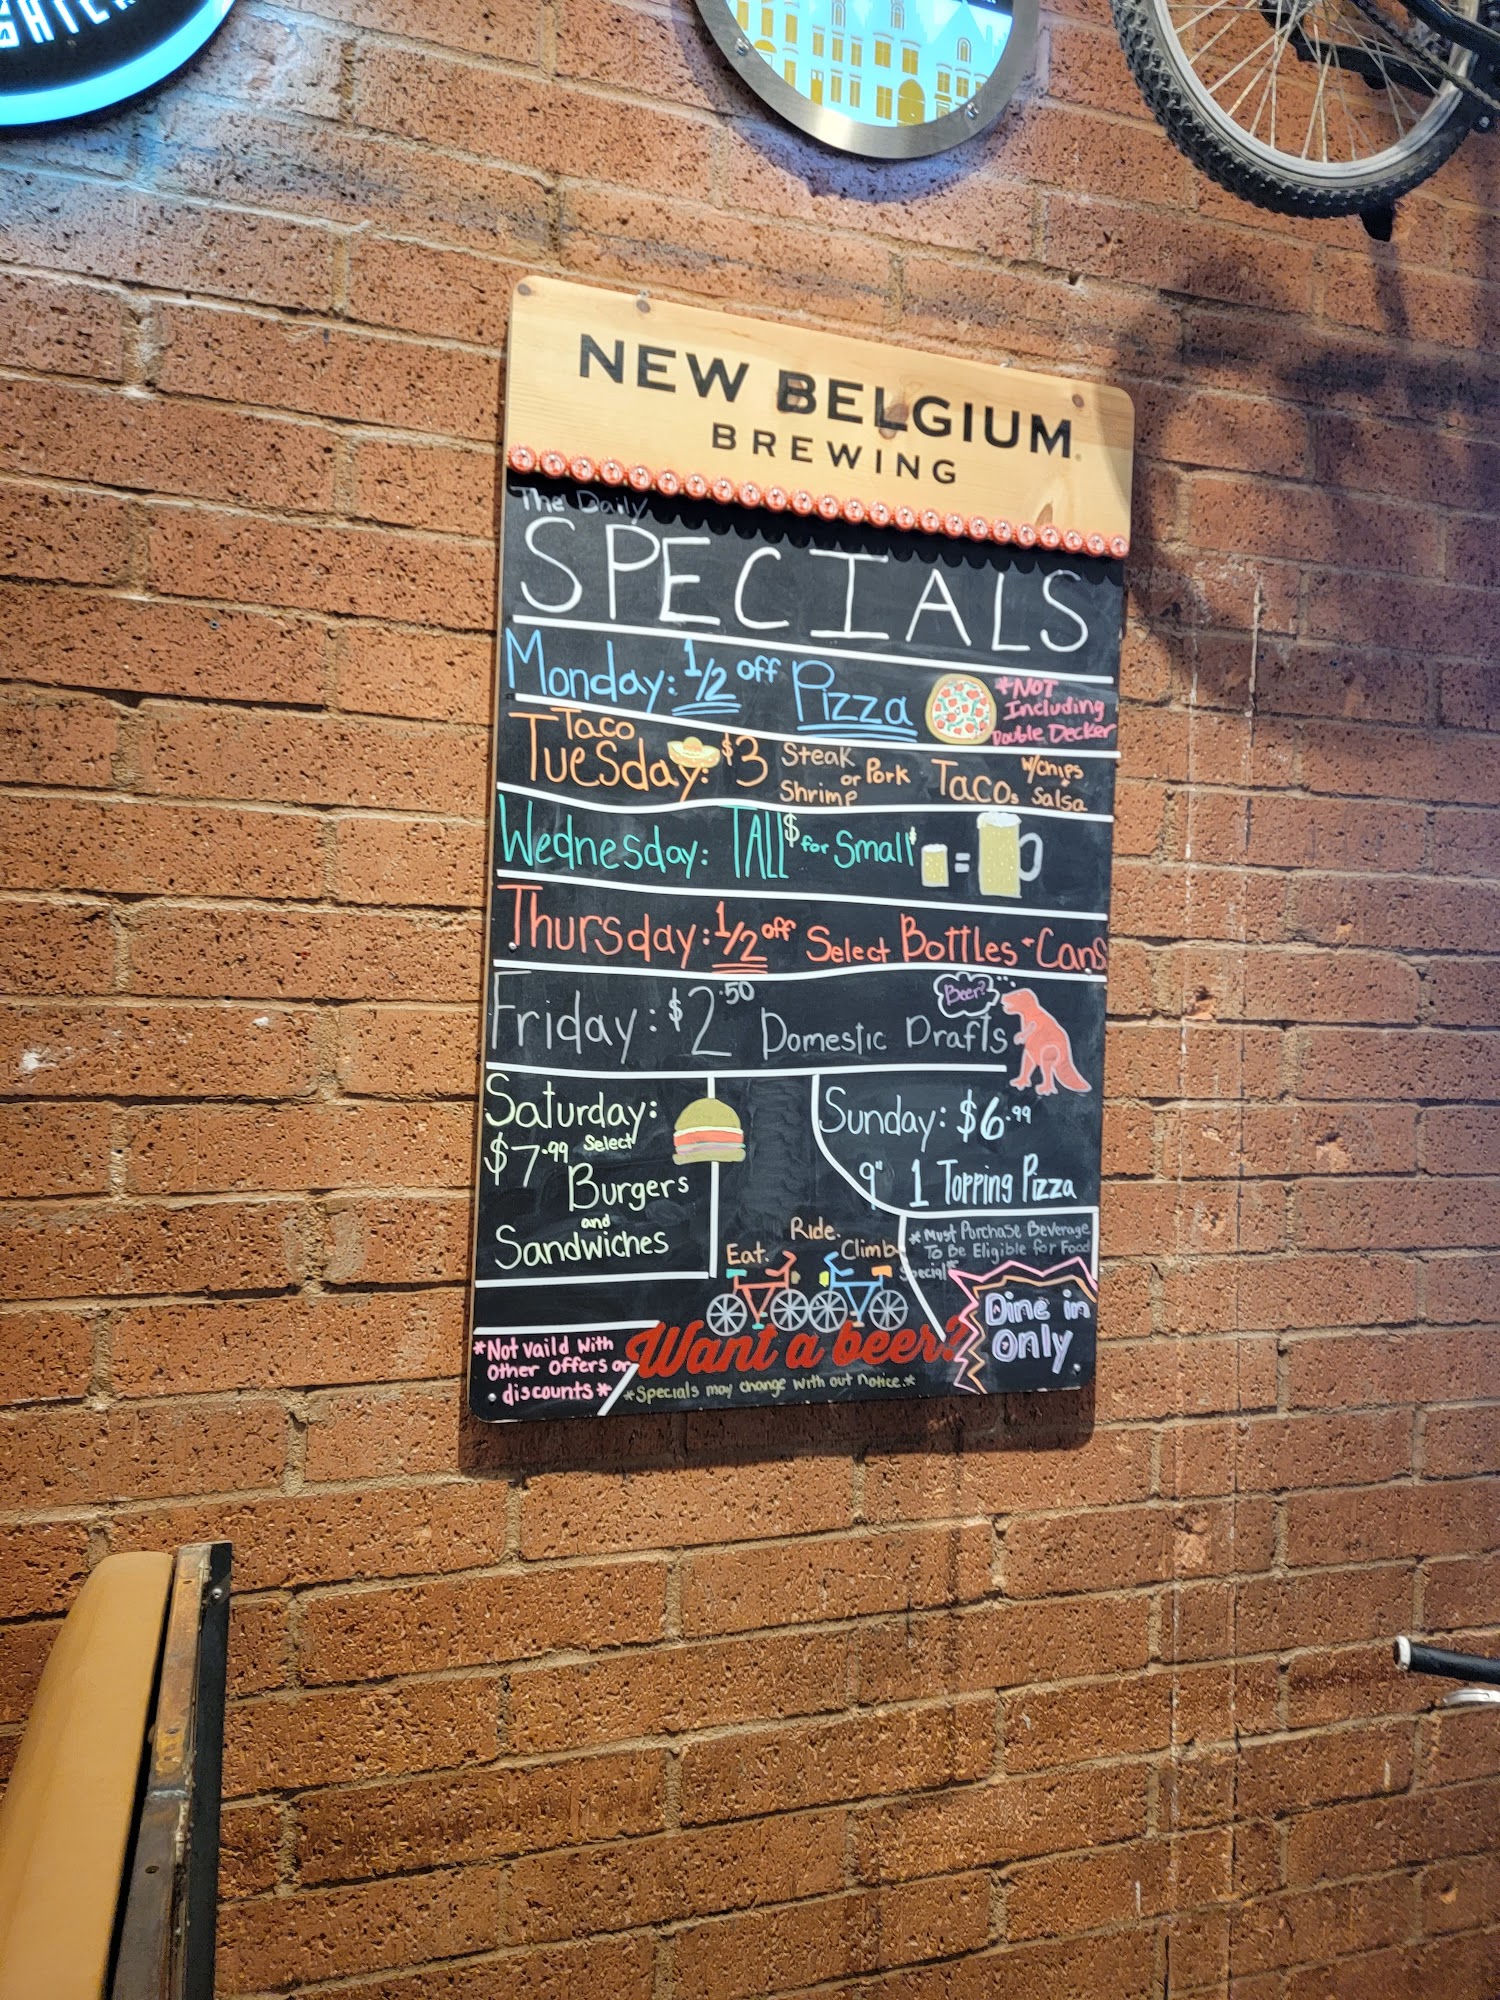 NEW BELGIUM
BREWING
The Daily
SPECIALS
Monday: 1/2 off Pizza *NOT Including Double Decker
Taco
Tuesday: $3 Steak or Pork Shrimp Tacos w/chips + Salsa
Wednesday: TALL$ for Small$ =
Thursday: 1/2 off Select Bottles + Cans
Beer?
Friday: $2.50 Domestic Drafts
Saturday:
$7.99 Select
Burgers
and
Sandwiches
Sunday: $6.99
9" 1 Topping Pizza
*Must Purchase Beverage
To Be Eligible for Food
Special*
Eat. Ride. Climb
Want a beer?
Dine in
Only
*Not vaild with
Other Offers or
discounts*
*Specials may change with out notice.*